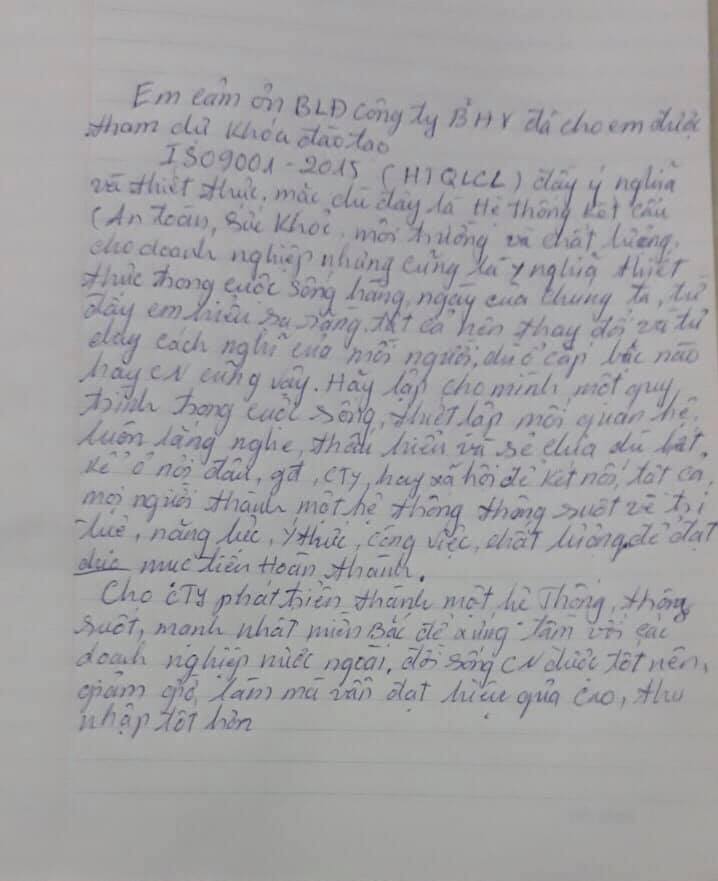 Em cảm ơn BLĐ công ty BHV đã cho em được
tham dự khóa đào tạo
ISO9001-2015 (HTQLCL) đầy ý nghĩa
và thiết thực, mặc dù đây là Hệ thống kết cấu
(An toàn, sức khỏe, môi trường và chất lượng,
cho doanh nghiệp nhưng cũng là ý nghĩa thiết
thực trong cuộc sống hàng, ngày của chúng ta, từ
đây em hiểu ra rằng, tất cả nên thay đổi và tư
duy cách nghĩ của mỗi người, dù ở cấp bậc nào
hay CN cũng vậy. Hãy lập cho mình một quy
trình trong cuộc sống, thiết lập mối quan hệ,
luôn lắng nghe, thấu hiểu và sẻ chia dù bất,
kể ở nơi đâu, gđ, CTy, hay xã hội để kết nối, tất cả,
mọi người thành một hệ thống thông suốt về trí
tuệ, năng lực, ý thức, công việc, chất lượng để đạt
được mục tiêu Hoàn thành.
Cho CTy phát triển thành một hệ Thống, thông
suốt, mạnh nhất miền Bắc để xứng tầm với các
doanh nghiệp nước ngoài, đời sống CN được tốt nên,
giảm giờ, làm mà vẫn đạt hiệu quả cao, thu
nhập tốt hơn